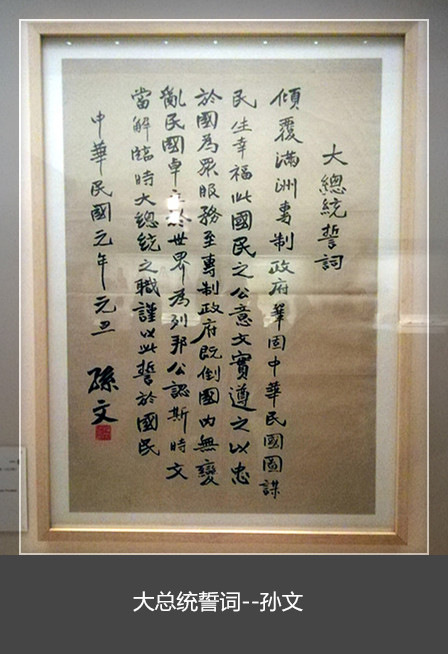 大總統誓詞
傾覆滿洲專制政府鞏固中華民國圖謀
民生幸福此國民之公意文實遵之以忠
於國為眾服務至專制政府既倒國內無變
亂民國卓立於世界為列邦公認斯時文
當解臨時大總統之職謹以此誓於國民
中華民國元年元旦
孫文
大总统誓词--孙文